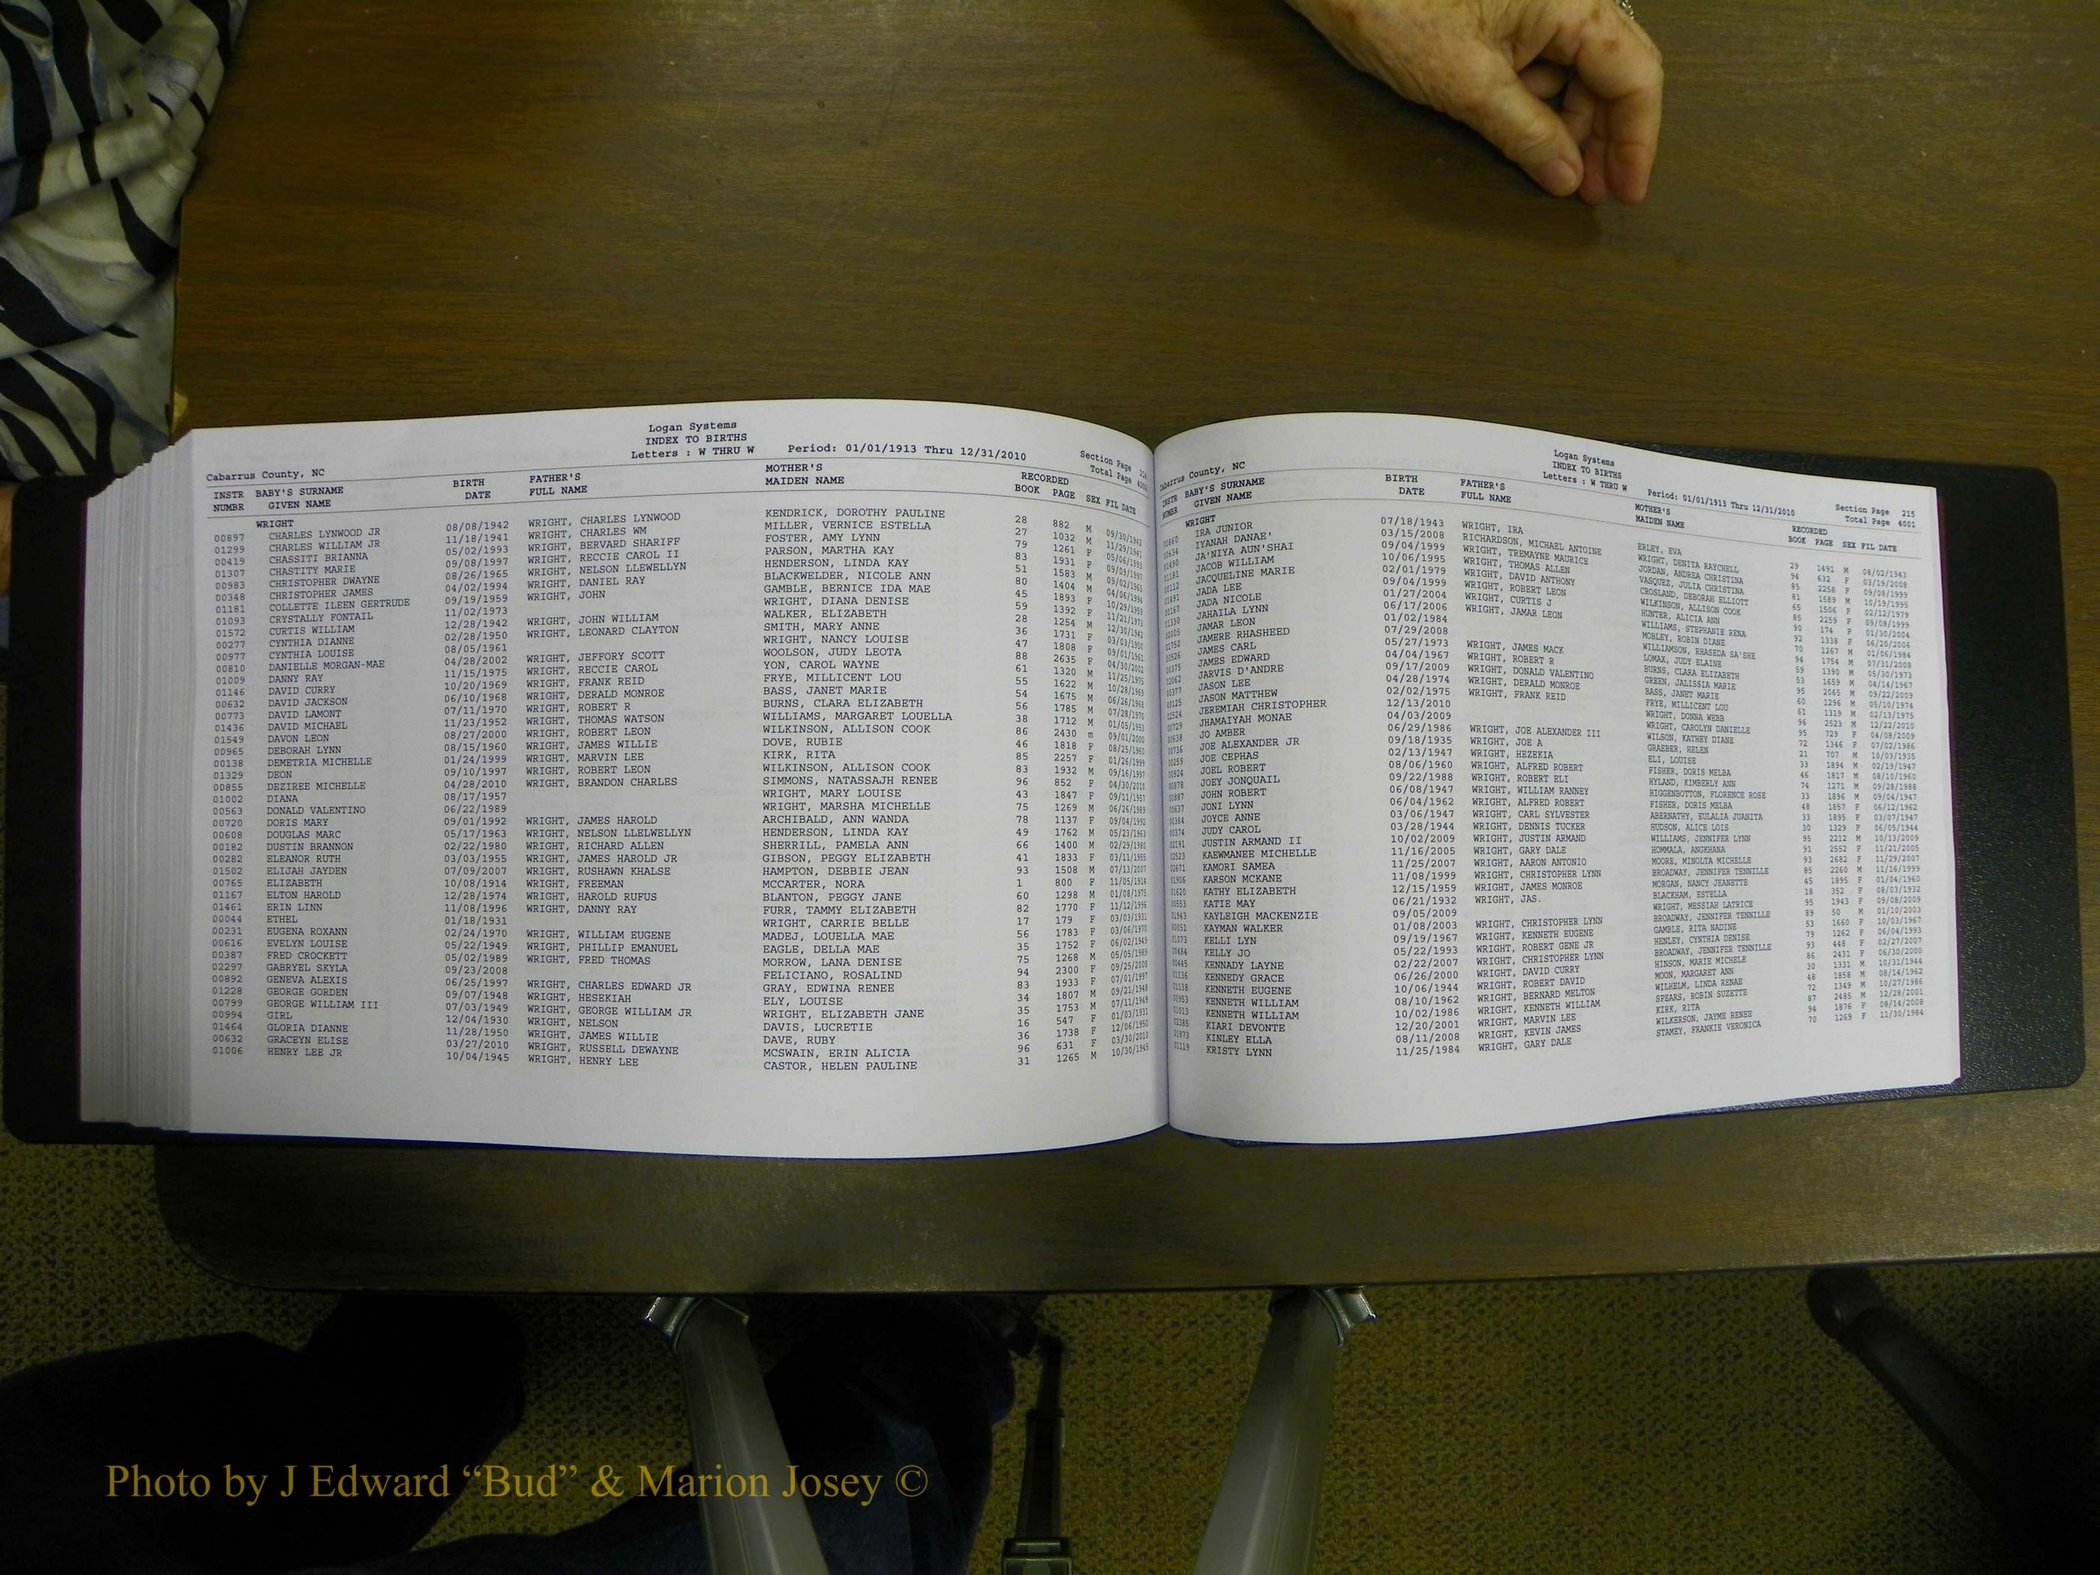 Logan Systems
INDEX TO BIRTHS
Letters : W THRU W Period: 01/01/1913 Thru 12/31/2010
Cabarrus County, NC Section Page 214
Total Page 4000
INSTR BABY'S SURNAME BIRTH FATHER'S MOTHER'S RECORDED
NUMBR GIVEN NAME DATE FULL NAME MAIDEN NAME BOOK PAGE SEX FIL DATE
WRIGHT
00897 CHARLES LYNWOOD JR 08/08/1942 WRIGHT, CHARLES LYNWOOD KENDRICK, DOROTHY PAULINE 28 882 M 09/30/1942
01299 CHARLES WILLIAM JR 11/18/1941 WRIGHT, CHARLES WM MILLER, VERNICE ESTELLA 27 1032 M 11/29/1941
00419 CHASSITI BRIANNA 05/02/1993 WRIGHT, BERVARD SHARIFF FOSTER, AMY LYNN 79 1261 F 05/06/1993
01307 CHASTITY MARIE 09/08/1997 WRIGHT, RECCIE CAROL II PARSON, MARTHA KAY 83 1931 F 09/09/1997
00983 CHRISTOPHER DWAYNE 08/26/1965 WRIGHT, NELSON LLEWELLYN HENDERSON, LINDA KAY 51 1583 M 09/02/1965
00348 CHRISTOPHER JAMES 04/02/1994 WRIGHT, DANIEL RAY BLACKWELDER, NICOLE ANN 80 1404 M 04/06/1994
01181 COLLETTE ILEEN GERTRUDE 09/19/1959 WRIGHT, JOHN GAMBLE, BERNICE IDA MAE 45 1893 F 10/29/1959
01093 CRYSTALLY FONTAIL 11/02/1973 WRIGHT, DIANA DENISE 59 1392 F 11/21/1973
01572 CURTIS WILLIAM 12/28/1942 WRIGHT, JOHN WILLIAM WALKER, ELIZABETH 28 1254 M 12/30/1942
00277 CYNTHIA DIANNE 02/28/1950 WRIGHT, LEONARD CLAYTON SMITH, MARY ANNE 36 1731 F 03/03/1950
00977 CYNTHIA LOUISE 08/05/1961 WRIGHT, NANCY LOUISE 47 1808 F 09/01/1961
00810 DANIELLE MORGAN-MAE 04/28/2002 WRIGHT, JEFFORY SCOTT WOOLSON, JUDY LEOTA 88 2635 F 04/30/2002
01009 DANNY RAY 11/15/1975 WRIGHT, RECCIE CAROL YON, CAROL WAYNE 61 1320 M 11/25/1975
01146 DAVID CURRY 10/20/1969 WRIGHT, FRANK REID FRYE, MILLICENT LOU 55 1622 M 10/28/1969
00632 DAVID JACKSON 06/10/1968 WRIGHT, DERALD MONROE BASS, JANET MARIE 54 1675 M 06/26/1968
00773 DAVID LAMONT 07/11/1970 WRIGHT, ROBERT R BURNS, CLARA ELIZABETH 56 1785 M 07/28/1970
01436 DAVID MICHAEL 11/23/1952 WRIGHT, THOMAS WATSON WILLIAMS, MARGARET LOUELLA 38 1712 M 01/05/1953
01549 DAVON LEON 08/27/2000 WRIGHT, ROBERT LEON WILKINSON, ALLISON COOK 86 2430 m 09/01/2000
00965 DEBORAH LYNN 08/15/1960 WRIGHT, JAMES WILLIE DOVE, RUBIE 46 1818 F 08/25/1960
00138 DEMETRIA MICHELLE 01/24/1999 WRIGHT, MARVIN LEE KIRK, RITA 85 2257 F 01/26/1999
01329 DEON 09/10/1997 WRIGHT, ROBERT LEON WILKINSON, ALLISON COOK 83 1932 M 09/16/1997
00855 DEZIREE MICHELLE 04/28/2010 WRIGHT, BRANDON CHARLES SIMMONS, NATASSAJH RENEE 96 852 F 04/30/2010
01002 DIANA 08/17/1957 WRIGHT, MARY LOUISE 43 1847 F 09/11/1957
00563 DONALD VALENTINO 06/22/1989 WRIGHT, MARSHA MICHELLE 75 1269 M 06/26/1989
00720 DORIS MARY 09/01/1992 WRIGHT, JAMES HAROLD ARCHIBALD, ANN WANDA 78 1137 F 09/04/1992
00608 DOUGLAS MARC 05/17/1963 WRIGHT, NELSON LLELWELLYN HENDERSON, LINDA KAY 49 1762 M 05/23/1963
00182 DUSTIN BRANNON 02/22/1980 WRIGHT, RICHARD ALLEN SHERRILL, PAMELA ANN 66 1400 M 02/29/1980
00282 ELEANOR RUTH 03/03/1955 WRIGHT, JAMES HAROLD JR GIBSON, PEGGY ELIZABETH 41 1833 F 03/11/1955
01502 ELIJAH JAYDEN 07/09/2007 WRIGHT, RUSHAWN KHALSE HAMPTON, DEBBIE JEAN 93 1508 M 07/13/2007
00765 ELIZABETH 10/08/1914 WRIGHT, FREEMAN MCCARTER, NORA 1 800 F 11/05/1914
01167 ELTON HAROLD 12/28/1974 WRIGHT, HAROLD RUFUS BLANTON, PEGGY JANE 60 1298 M 01/08/1975
01461 ERIN LINN 11/08/1996 WRIGHT, DANNY RAY FURR, TAMMY ELIZABETH 82 1770 F 11/12/1996
00044 ETHEL 01/18/1931 WRIGHT, CARRIE BELLE 17 179 F 03/03/1931
00231 EUGENA ROXANN 02/24/1970 WRIGHT, WILLIAM EUGENE MADEJ, LOUELLA MAE 56 1783 F 03/06/1970
00616 EVELYN LOUISE 05/22/1949 WRIGHT, PHILLIP EMANUEL EAGLE, DELLA MAE 35 1752 F 06/02/1949
00387 FRED CROCKETT 05/02/1989 WRIGHT, FRED THOMAS MORROW, LANA DENISE 75 1268 M 05/05/1989
02297 GABRYEL SKYLA 09/23/2008 FELICIANO, ROSALIND 94 2300 F 09/25/2008
00892 GENEVA ALEXIS 06/25/1997 WRIGHT, CHARLES EDWARD JR GRAY, EDWINA RENEE 83 1933 F 07/01/1997
01228 GEORGE GORDEN 09/07/1948 WRIGHT, HESEKIAH ELY, LOUISE 34 1807 M 09/21/1948
00799 GEORGE WILLIAM III 07/03/1949 WRIGHT, GEORGE WILLIAM JR WRIGHT, ELIZABETH JANE 35 1753 M 07/11/1949
00994 GIRL 12/04/1930 WRIGHT, NELSON DAVIS, LUCRETIE 16 547 F 01/03/1931
01464 GLORIA DIANNE 11/28/1950 WRIGHT, JAMES WILLIE DAVE, RUBY 36 1738 F 12/06/1950
00632 GRACEYN ELISE 03/27/2010 WRIGHT, RUSSELL DEWAYNE MCSWAIN, ERIN ALICIA 96 631 F 03/30/2010
01006 HENRY LEE JR 10/04/1945 WRIGHT, HENRY LEE CASTOR, HELEN PAULINE 31 1265 M 10/30/1945
Logan Systems
INDEX TO BIRTHS
Letters : W THRU W Period: 01/01/1913 Thru 12/31/2010
Cabarrus County, NC Section Page 215
Total Page 4001
INSTR BABY'S SURNAME BIRTH FATHER'S MOTHER'S RECORDED
NUMBR GIVEN NAME DATE FULL NAME MAIDEN NAME BOOK PAGE SEX FIL DATE
WRIGHT
00860 IRA JUNIOR 07/18/1943 WRIGHT, IRA ERLEY, EVA 29 1491 M 08/02/1943
00634 IYANAH DANAE' 03/15/2008 RICHARDSON, MICHAEL ANTOINE WRIGHT, DENITA RAYCHELL 94 632 F 03/19/2008
01490 JA'NIYA AUN'SHAI 09/04/1999 WRIGHT, TREMAYNE MAURICE JORDAN, ANDREA CHRISTINA 85 2258 F 09/08/1999
01181 JACOB WILLIAM 10/06/1995 WRIGHT, THOMAS ALLEN VASQUEZ, JULIA CHRISTINA 81 1589 M 10/19/1995
00112 JACQUELINE MARIE 02/01/1979 WRIGHT, DAVID ANTHONY CROSLAND, DEBORAH ELLIOTT 65 1506 F 02/12/1979
01491 JADA LEE 09/04/1999 WRIGHT, ROBERT LEON WILKINSON, ALLISON COOK 85 2259 F 09/08/1999
00167 JADA NICOLE 01/27/2004 WRIGHT, CURTIS J HUNTER, ALICIA ANN 90 174 F 01/30/2004
01330 JAHAILA LYNN 06/17/2006 WRIGHT, JAMAR LEON WILLIAMS, STEPHANIE RENA 92 1338 F 06/20/2006
00005 JAMAR LEON 01/02/1984 MOBLEY, ROBIN DIANE 70 1267 M 01/06/1984
01750 JAMERE RHASHEED 07/29/2008 WILLIAMSON, RHASEDA SA'SHE 94 1754 M 07/31/2008
00526 JAMES CARL 05/27/1973 WRIGHT, JAMES MACK LOMAX, JUDY ELAINE 59 1390 M 05/30/1973
00375 JAMES EDWARD 04/04/1967 WRIGHT, ROBERT R BURNS, CLARA ELIZABETH 53 1659 M 04/14/1967
02062 JARVIS D'ANDRE 09/17/2009 WRIGHT, DONALD VALENTINO GREEN, JALISSIA MARIE 95 2065 M 09/22/2009
00377 JASON LEE 04/28/1974 WRIGHT, DERALD MONROE BASS, JANET MARIE 60 1296 M 05/10/1974
00125 JASON MATTHEW 02/02/1975 WRIGHT, FRANK REID FRYE, MILLICENT LOU 61 1319 M 02/13/1975
02524 JEREMIAH CHRISTOPHER 12/13/2010 WRIGHT, DONNA WEBB 96 2523 M 12/22/2010
00729 JHAMAIYAH MONAE 04/03/2009 WRIGHT, CAROLYN DANIELLE 95 729 F 04/08/2009
00638 JO AMBER 06/29/1986 WRIGHT, JOE ALEXANDER III WILSON, KATHEY DIANE 72 1346 F 07/02/1986
00736 JOE ALEXANDER JR 09/18/1935 WRIGHT, JOE A GRAEBER, HELEN 21 707 M 10/03/1935
00259 JOE CEPHAS 02/13/1947 WRIGHT, HEZEKIA ELI, LOUISE 33 1894 M 02/19/1947
00924 JOEL ROBERT 08/06/1960 WRIGHT, ALFRED ROBERT FISHER, DORIS MELBA 46 1817 M 08/10/1960
00878 JOEY JONQUAIL 09/22/1988 WRIGHT, ROBERT ELI HYLAND, KIMBERLY ANN 74 1271 M 09/28/1988
00887 JOHN ROBERT 06/08/1947 WRIGHT, WILLIAM RANNEY HIGGENBOTTON, FLORENCE ROSE 33 1896 M 09/04/1947
00637 JONI LYNN 06/04/1962 WRIGHT, ALFRED ROBERT FISHER, DORIS MELBA 48 1857 F 06/12/1962
00384 JOYCE ANNE 03/06/1947 WRIGHT, CARL SYLVESTER ABERNATHY, EULALIA JUANITA 33 1895 F 03/07/1947
00374 JUDY CAROL 03/28/1944 WRIGHT, DENNIS TUCKER HUDSON, ALICE LOIS 30 1329 F 06/05/1944
02191 JUSTIN ARMAND II 10/02/2009 WRIGHT, JUSTIN ARMAND WILLIAMS, JENNIFER LYNN 95 2212 M 10/13/2009
02523 KAEWMANEE MICHELLE 11/16/2005 WRIGHT, GARY DALE HOMMALA, ANGKHANA 91 2552 F 11/21/2005
02671 KAMORI SAMEA 11/25/2007 WRIGHT, AARON ANTONIO MOORE, MINOLTA MICHELLE 93 2682 F 11/29/2007
01906 KARSON MCKANE 11/08/1999 WRIGHT, CHRISTOPHER LYNN BROADWAY, JENNIFER TENNILLE 85 2260 M 11/16/1999
02020 KATHY ELIZABETH 12/15/1959 WRIGHT, JAMES MONROE MORGAN, NANCY JEANETTE 45 1895 F 01/04/1960
00553 KATIE MAY 06/21/1932 WRIGHT, JAS. BLACKHAM, ESTELLA 18 352 F 08/03/1932
01943 KAYLEIGH MACKENZIE 09/05/2009 WRIGHT, MESSIAH LATRICE 95 1943 F 09/08/2009
00051 KAYMAN WALKER 01/08/2003 WRIGHT, CHRISTOPHER LYNN BROADWAY, JENNIFER TENNILLE 89 50 M 01/10/2003
01073 KELLI LYN 09/19/1967 WRIGHT, KENNETH EUGENE GAMBLE, RITA NADINE 53 1660 F 10/03/1967
00484 KELLY JO 05/22/1993 WRIGHT, ROBERT GENE JR HENLEY, CYNTHIA DENISE 79 1262 F 06/04/1993
00445 KENNADY LAYNE 02/22/2007 WRIGHT, CHRISTOPHER LYNN BROADWAY, JENNIFER TENNILLE 93 448 F 02/27/2007
01136 KENNEDY GRACE 06/26/2000 WRIGHT, DAVID CURRY HINSON, MARIE MICHELE 86 2431 F 06/30/2000
01118 KENNETH EUGENE 10/06/1944 WRIGHT, ROBERT DAVID MOON, MARGARET ANN 30 1331 M 10/31/1944
00953 KENNETH WILLIAM 08/10/1962 WRIGHT, BERNARD MELTON WILHELM, LINDA RENAE 48 1858 M 08/14/1962
01013 KENNETH WILLIAM 10/02/1986 WRIGHT, KENNETH WILLIAM SPEARS, ROBIN SUZETTE 72 1349 M 10/27/1986
02385 KIARI DEVONTE 12/20/2001 WRIGHT, MARVIN LEE KIRK, RITA 87 2485 M 12/28/2001
01873 KINLEY ELLA 08/11/2008 WRIGHT, KEVIN JAMES WILKERSON, JAYME RENEE 94 1876 F 08/14/2008
01119 KRISTY LYNN 11/25/1984 WRIGHT, GARY DALE STAMEY, FRANKIE VERONICA 70 1269 F 11/30/1984
Photo by J Edward “Bud” & Marion Josey ©